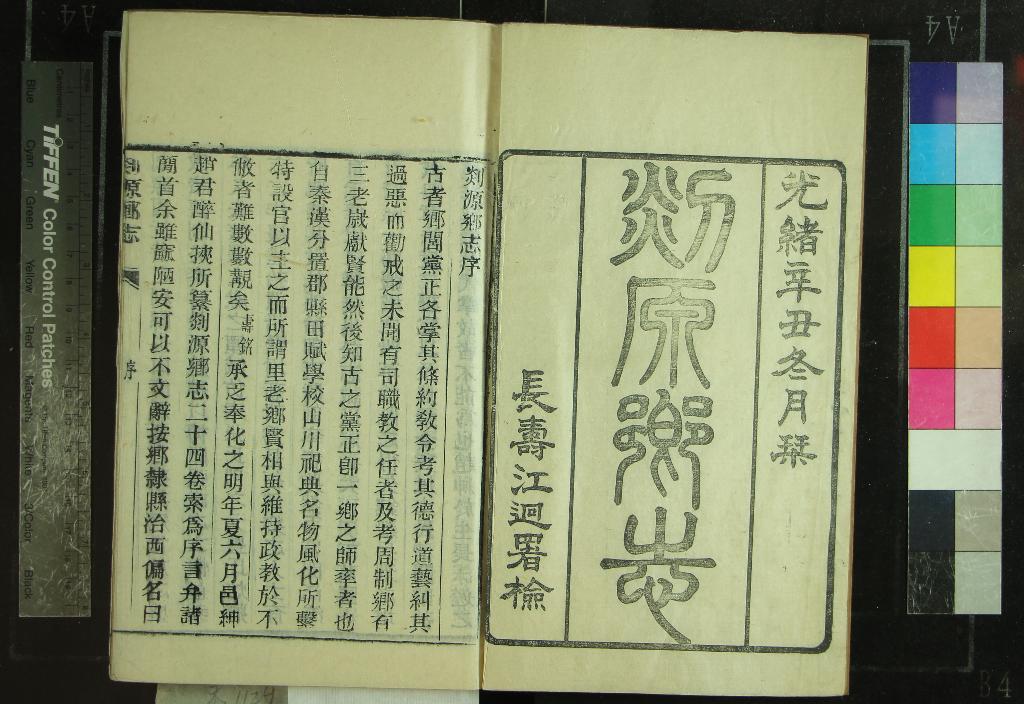 光緒辛丑冬月琹
剡源鄉志
長壽江迥署檢
剡源鄉志序
古者鄉閭黨正各掌其條約敎令考其德行道藝糾其
過惡而勸戒之未聞有司職教之任者及考周制鄉有
三老歲獻賢能然後知古之黨正卽一鄉之師率者也
自秦漢分置郡縣田賦學校山川祀典名物風化所繫
特設官以主之而所謂里老鄉賢相與維持政教於不
敝者難數數覯矣壽銘承乏奉化之明年夏六月邑紳
趙君醉仙挾所纂剡源鄉志二十四卷索爲序言弁諸
簡首余雖寙陋安可以不文辭按鄉隸縣治西偏名曰
剡原鄉志
序
TIFFEN Color Control Patches
Blue
Cyan
Green
Yellow
Red
Magenta
White
3/Color
Black
Centimetres
A4
A4
B4